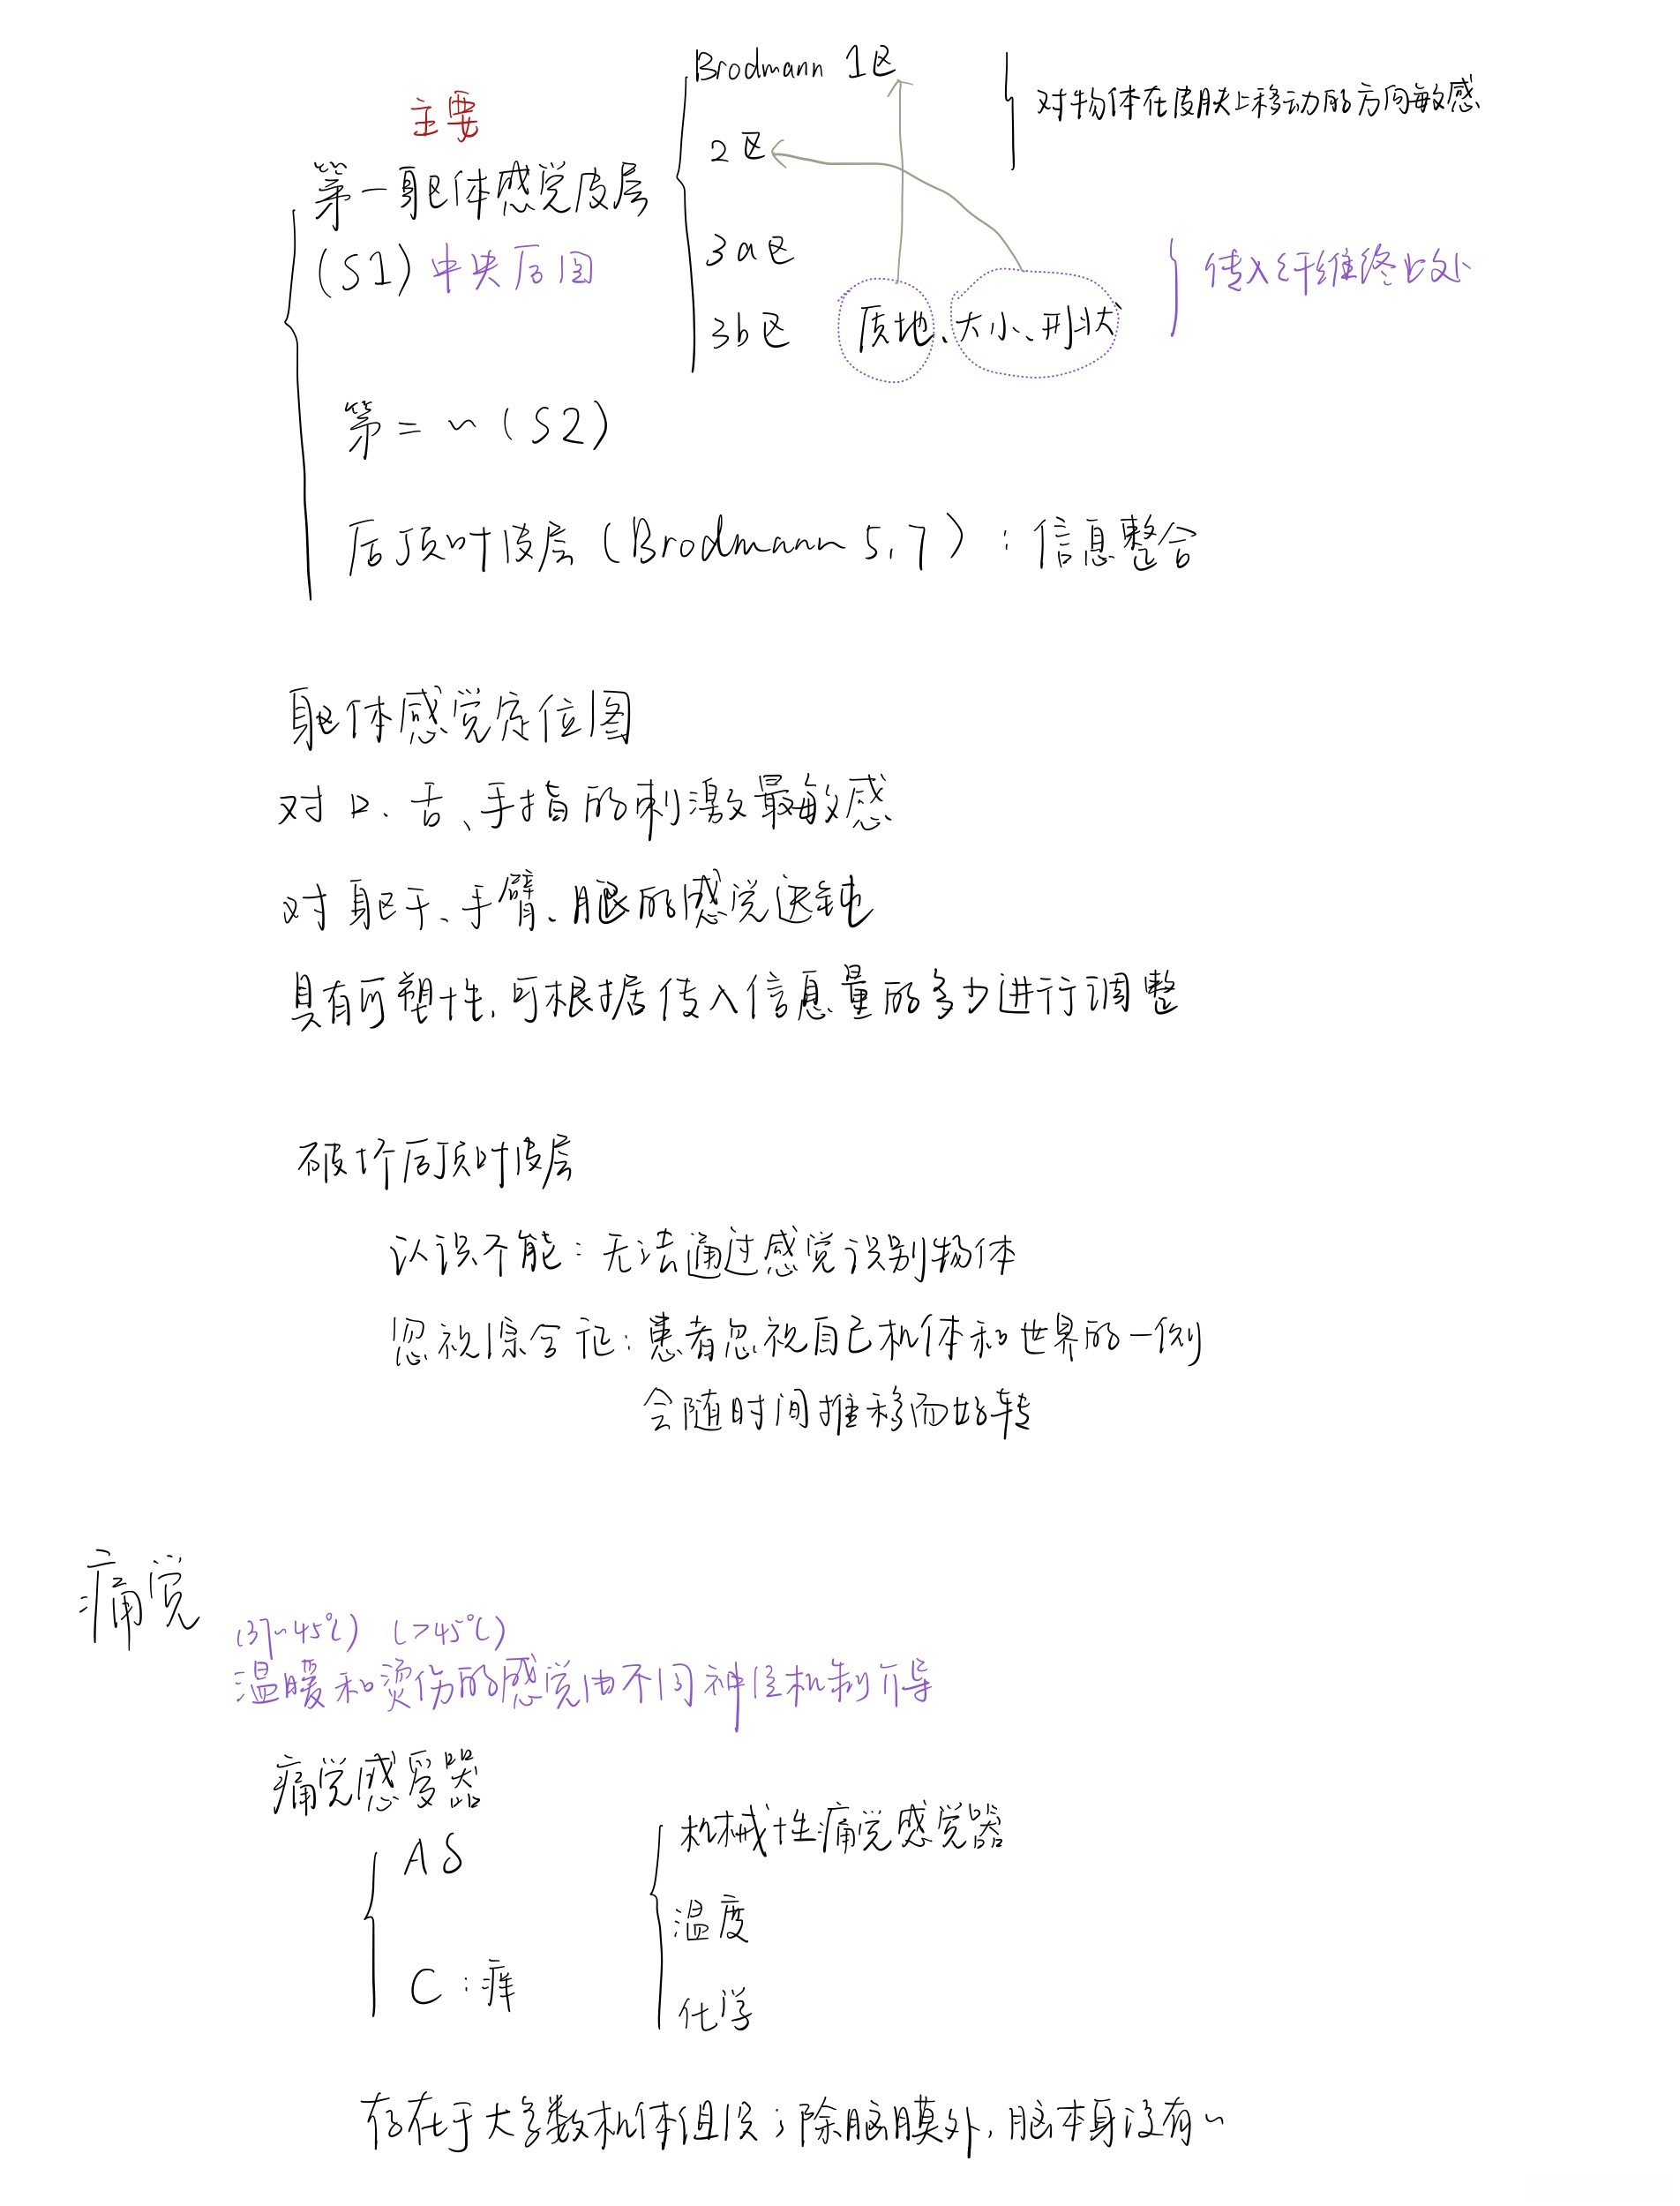 主要
第一躯体感觉皮层
(S1) 中央后回
Brodmann 1区
2区
对物体在皮肤上移动的方向敏感
3a区
3b区 质地、大小、形状
传入纤维终止处
第二~(S2)
后顶叶皮层(Brodmann 5,7):信息整合
躯体感觉定位图
对口、舌、手指的刺激最敏感
对躯干、手臂、腿的感觉迟钝
具有可塑性,可根据传入信息量的多少进行调整
破坏后顶叶皮层
认识不能:无法通过感觉识别物体
忽视综合征:患者忽视自己机体和世界的一侧
会随时间推移而好转
痛觉
(37~45℃) (>45℃)
温暖和烫伤的感觉由不同神经机制介导
痛觉感受器
Aδ
C:痒
机械性痛觉感觉器
温度
化学
存在于大多数机体组织;除脑膜外,脑本身没有~